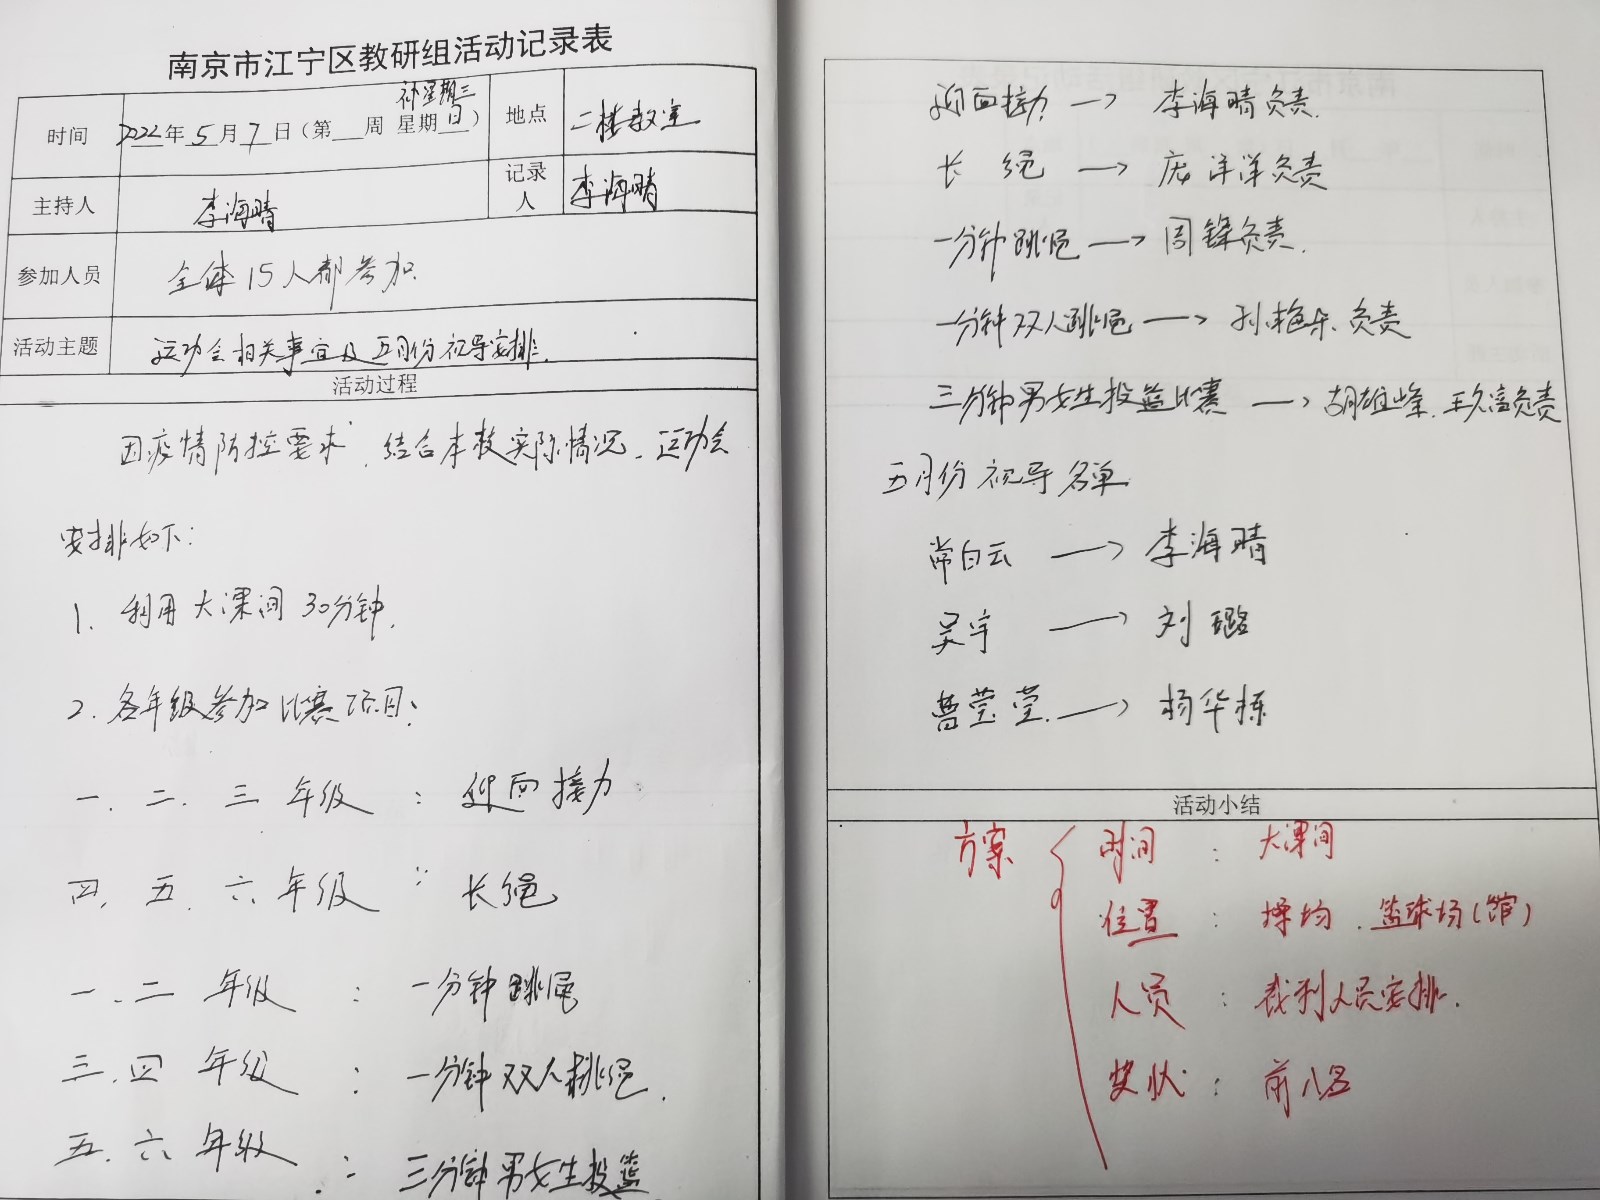 南京市江宁区教研组活动记录表
补星期三
时间 2022年5月7日(第 周 星期日) 地点 二楼教室
主持人 李海晴 记录人 李海晴
参加人员 全体15人都参加
活动主题 运动会相关事宜及五月份视导安排.
活动过程
因疫情防控要求,结合本校实际情况,运动会
安排如下:
1. 利用大课间30分钟.
2. 各年级参加比赛项目:
一、二、三年级 : 迎面接力
四、五、六年级 : 长绳
一、二年级 : 一分钟跳绳
三、四年级 : 一分钟双人跳绳.
五、六年级 : 三分钟男女生投篮
迎面接力 → 李海晴负责.
长绳 → 庞洋洋负责
一分钟跳绳 → 周锋负责.
一分钟双人跳绳 → 孙艳乐负责
三分钟男女生投篮比赛 → 胡雄峰、王久富负责
五月份视导名单
常白云 → 李海晴
吴宇 → 刘璐
曹莹莹. → 杨华栋
活动小结
方案 时间 : 大课间
位置 : 操均、篮球场(馆)
人员 : 裁判人员安排.
奖状 : 前八名